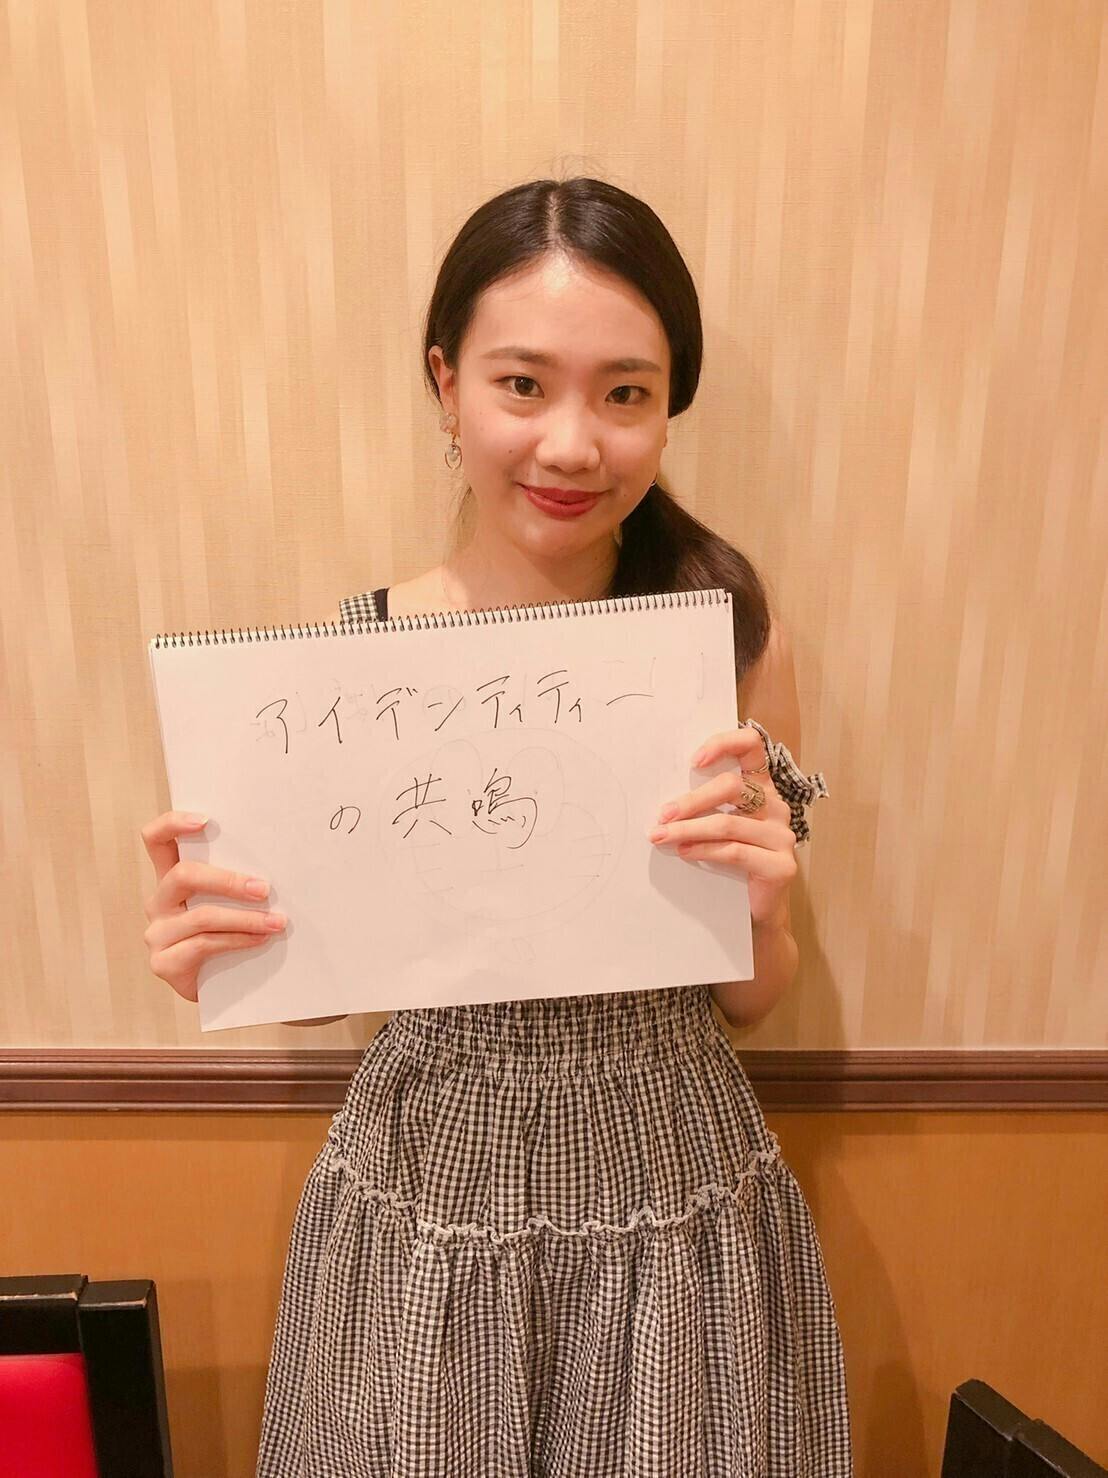 アイデンティティー
の共鳴